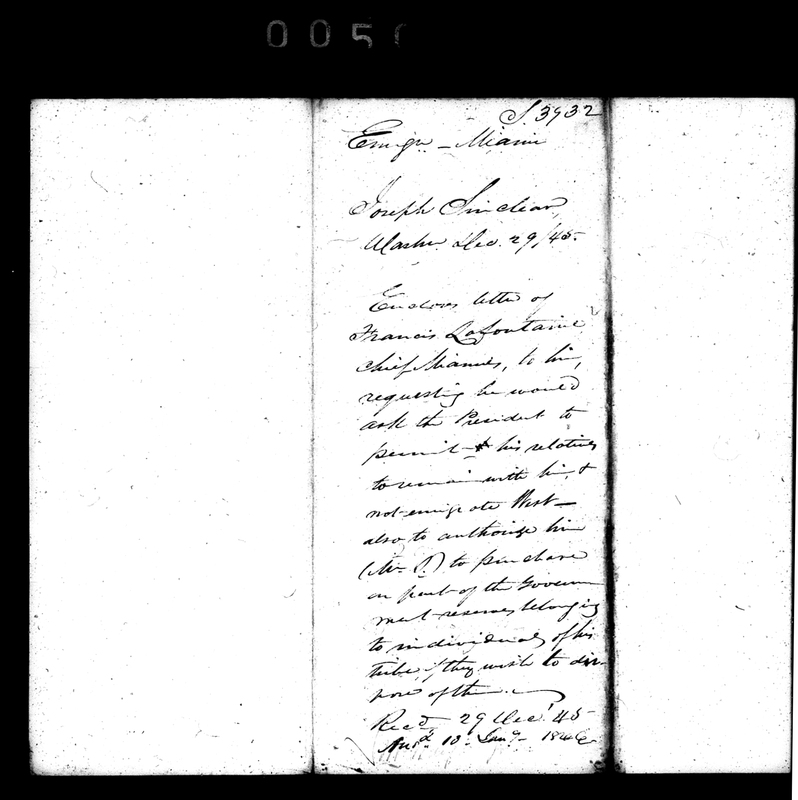 005
S. 3932
Emign - Miami
Joseph Sinclear,
Washn. Dec. 29/45.
Encloses letter of
Francis Lafontaine
Chief Miamies, to him,
requesting he would
ask the President to
permit his relatives
to remain with him, &
not emigrate West—
also to authorize him
(Mr. S.) to purchase
on part of the Govern
ment reserves belonging
to individuals of his
tribe, if they wish to dis-
pose of them.
Recd 29 Dec. 45
Ansd. 10. Jany. 1846